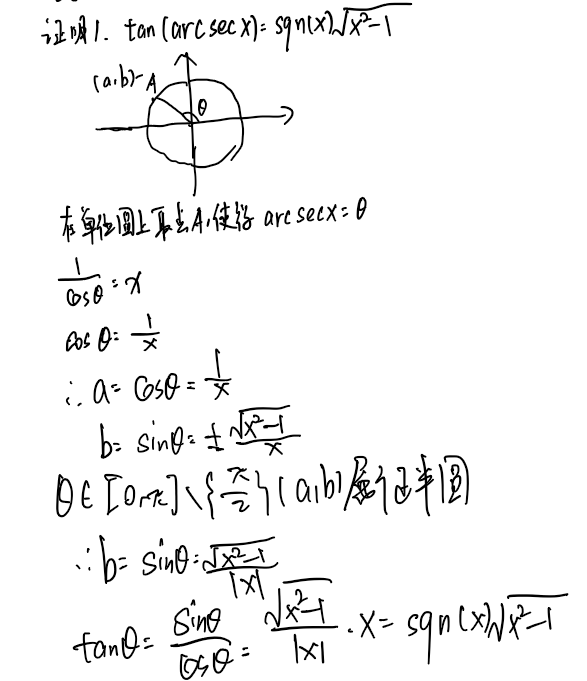 证明1. tan(arcsecx)=sgn(x)√(x²-1)
(a,b)-A
θ
在单位圆上取点A,使得 arcsecx=θ
1/cosθ=x
cosθ=1/x
∴a=cosθ=1/x
b=sinθ=±√(x²-1)/x
θ∈[0,π]\{π/2}(a,b)属于正半圆
∴b=sinθ=√(x²-1)/|x|
tanθ=sinθ/cosθ=√(x²-1)/|x|·x=sgn(x)√(x²-1)